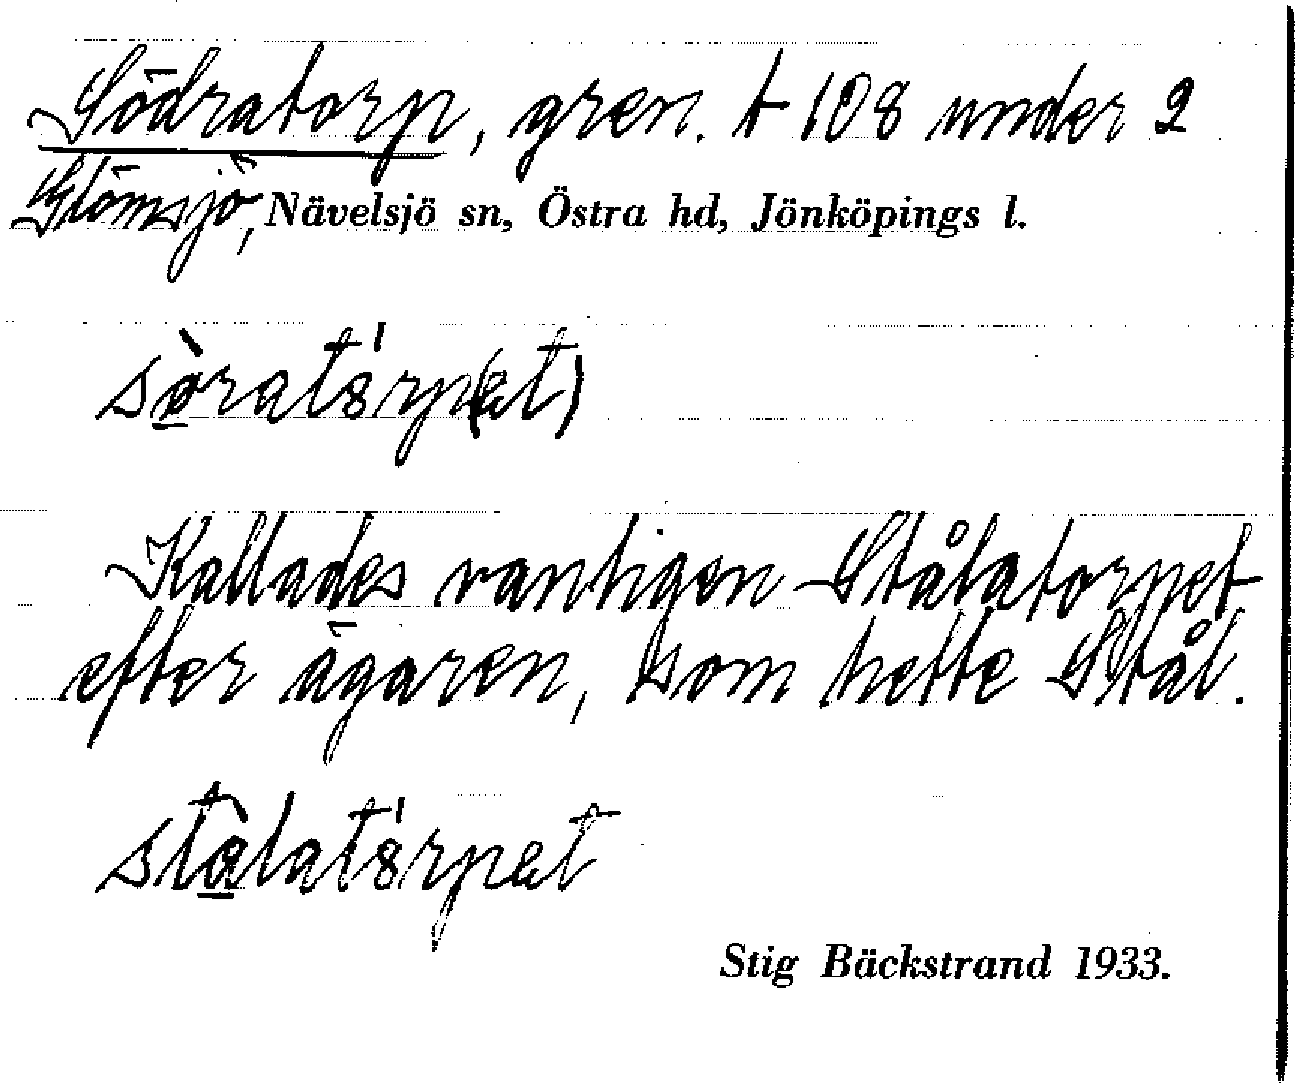 Södratorp, gren. t 108 under 2
Glömsjö, Nävelsjö sn, Östra hd, Jönköpings l.
sòratórp(et)
Kallades vanligen Stålatorpet
efter ägaren, som hette Stål.
stàlatórpet
Stig Bäckstrand 1933.